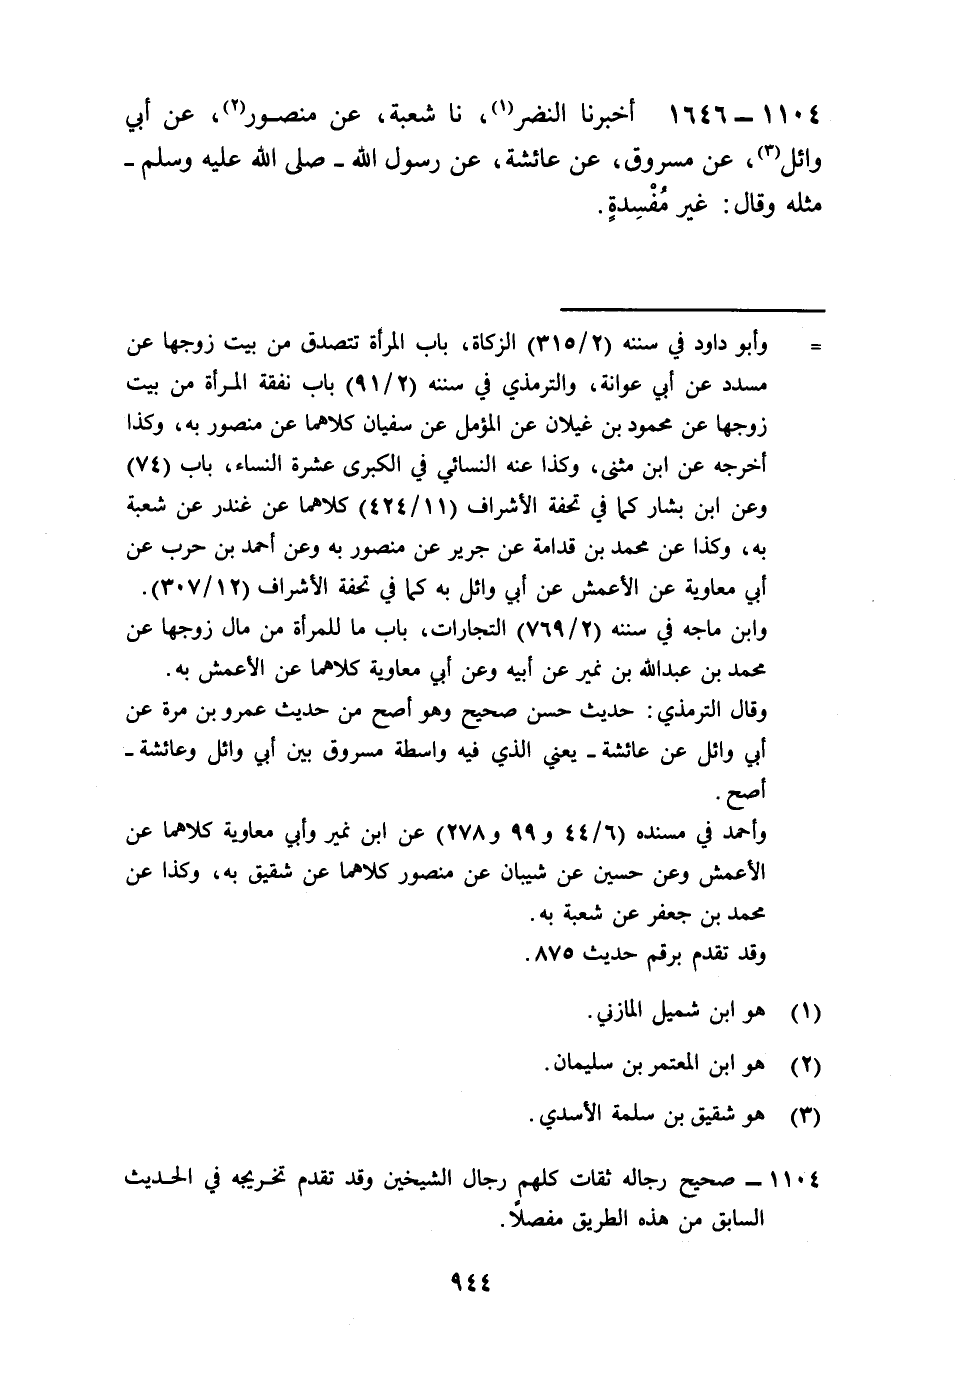 ١١٠٤ – ١٦٤٦ أخبرنا النضر(١)، نا شعبة، عن منصور(٢)، عن أبي
وائل(٣)، عن مسروق، عن عائشة، عن رسول الله - صلى الله عليه وسلم -
مثله وقال: غير مُفْسِدةٍ.
= وأبو داود في سننه (٣١٥/٢) الزكاة، باب المرأة تتصدق من بيت زوجها عن
مسدد عن أبي عوانة، والترمذي في سننه (٩١/٢) باب نفقة المرأة من بيت
زوجها عن محمود بن غيلان عن المؤمل عن سفيان كلاهما عن منصور به، وكذا
أخرجه عن ابن مثنى، وكذا عنه النسائي في الكبرى عشرة النساء، باب (٧٤)
وعن ابن بشار كما في تحفة الأشراف (٤٢٤/١١) كلاهما عن غندر عن شعبة
به، وكذا عن محمد بن قدامة عن جرير عن منصور به وعن أحمد بن حرب عن
أبي معاوية عن الأعمش عن أبي وائل به كما في تحفة الأشراف (٣٠٧/١٢).
وابن ماجه في سننه (٧٦٩/٢) التجارات، باب ما للمرأة من مال زوجها عن
محمد بن عبدالله بن نمير عن أبيه وعن أبي معاوية كلاهما عن الأعمش به.
وقال الترمذي: حديث حسن صحيح وهو أصح من حديث عمرو بن مرة عن
أبي وائل عن عائشة - يعني الذي فيه واسطة مسروق بين أبي وائل وعائشة -
أصح.
وأحمد في مسنده (٤٤/٦ و ٩٩ و ٢٧٨) عن ابن نمير وأبي معاوية كلاهما عن
الأعمش وعن حسين عن شيبان عن منصور كلاهما عن شقيق به، وكذا عن
محمد بن جعفر عن شعبة به.
وقد تقدم برقم حديث ٨٧٥.
(١) هو ابن شميل المازني.
(٢) هو ابن المعتمر بن سليمان.
(٣) هو شقيق بن سلمة الأسدي.
١١٠٤ – صحيح رجاله ثقات كلهم رجال الشيخين وقد تقدم تخريجه في الحديث
السابق من هذه الطريق مفصلًا.
٩٤٤